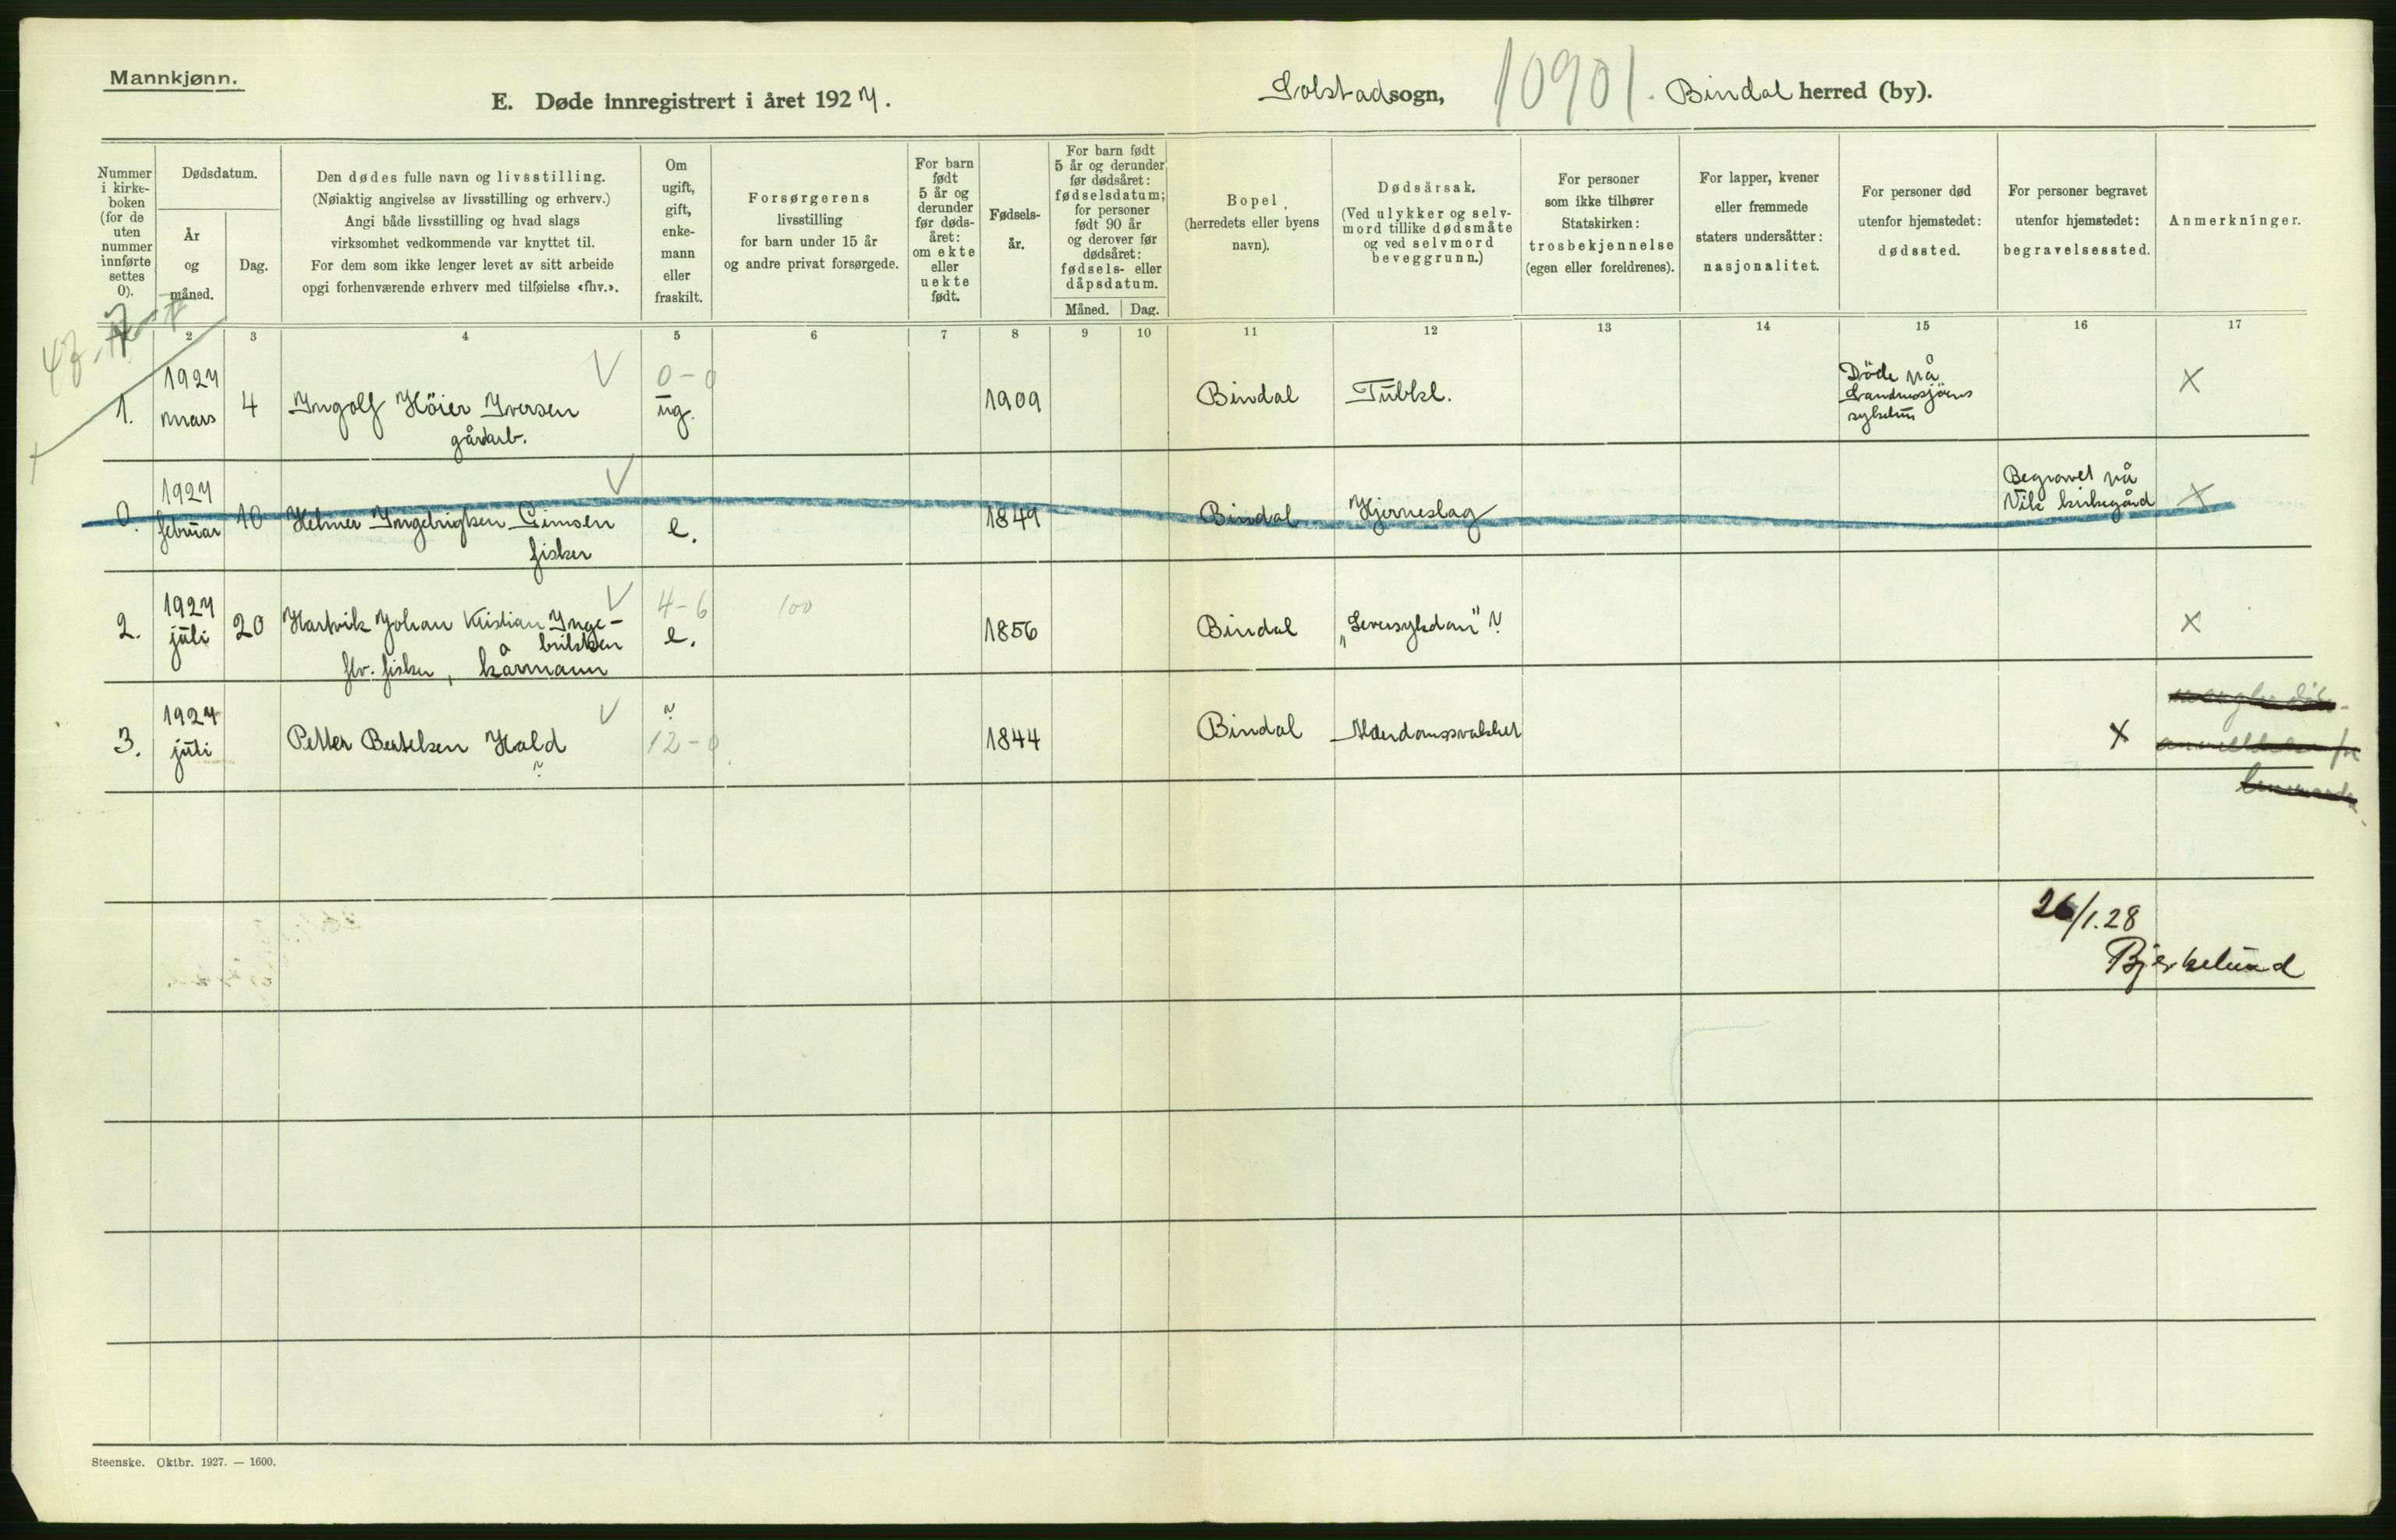 Mannkjønn.
E. Døde innregistrert i året 1927.
Solstad sogn, 10901. Bindal herred (by).
Nummer i kirke-boken (for de uten nummer innførte settes 0).
Dødsdatum.
År og måned.
Dag.
Den dødes fulle navn og livsstilling.
(Nøiaktig angivelse av livsstilling og erhverv.)
Angi både livsstilling og hvad slags
virksomhet vedkommende var knyttet til.
For dem som ikke lenger levet av sitt arbeide
opgi forhenværende erhverv med tilføielse «fhv.».
Om ugift, gift, enke-mann eller fraskilt.
Forsørgerens
livsstilling
for barn under 15 år
og andre privat forsørgede.
For barn født 5 år og derunder før døds-året: om ekte eller uekte født.
Fødsels-år.
For barn født 5 år og derunder før dødsåret: fødselsdatum; for personer født 90 år og derover før dødsåret: fødsels- eller dåpsdatum.
Måned. Dag.
Bopel
(herredets eller byens
navn).
Dødsårsak.
(Ved ulykker og selv-
mord tillike dødsmåte
og ved selvmord
beveggrunn.)
For personer
som ikke tilhører
Statskirken:
trosbekjennelse
(egen eller foreldrenes).
For lapper, kvener
eller fremmede
staters undersåtter:
nasjonalitet.
For personer død
utenfor hjemstedet:
dødssted.
For personer begravet
utenfor hjemstedet:
begravelsessted.
Anmerkninger.
2 3 4 5 6 7 8 9 10 11 12 13 14 15 16 17
1. 1927 mars 4 Ingolf Höier Iversen V 0-0 ug. 1909 Bindal Tubkl. Döde på Sandnessjöens sykehus X
gårdarb.
0. 1927 februar 10 Helmer Ingebrigtsen Simsen V e. 1849 Bindal Hjerneslag Begravet på Vik kirkegård X
fisker
2. 1927 juli 20 Hartvik Johan Kristian Inge- V 4-6 100 e. 1856 Bindal „Leversykdom" ? X
briktsen
fhv. fisker, kårmann
3. 1927 juli Petter Bertelsen Hald V ? 12-0 1844 Bindal Alderdomssvakhet X
?
26/1.28
Bjerkelund
Steenske. Oktbr. 1927. — 1600.